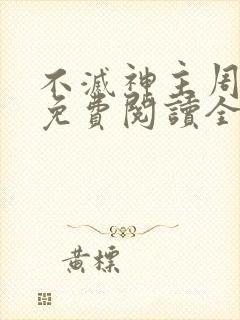 不滅神主周
免費閱讀全
黃標